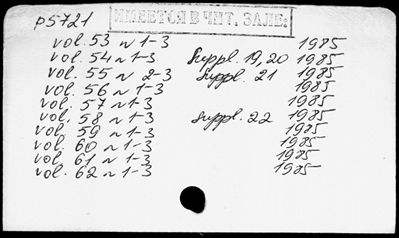 p5721 ИМЕЕТСЯ В ЧИТ. ЗАЛЕ:
vol. 53 n 1-3 1985
vol. 54 n 1-3 Suppl. 19, 20 1985
vol. 55 n 2-3 Suppl. 21 1985
vol. 56 n 1-3 1985
vol. 57 n 1-3 1985
vol. 58 n 1-3 Suppl. 22 1985
vol. 59 n 1-3 1985
vol. 60 n 1-3 1985
vol. 61 n 1-3 1985
vol. 62 n 1-3 1985